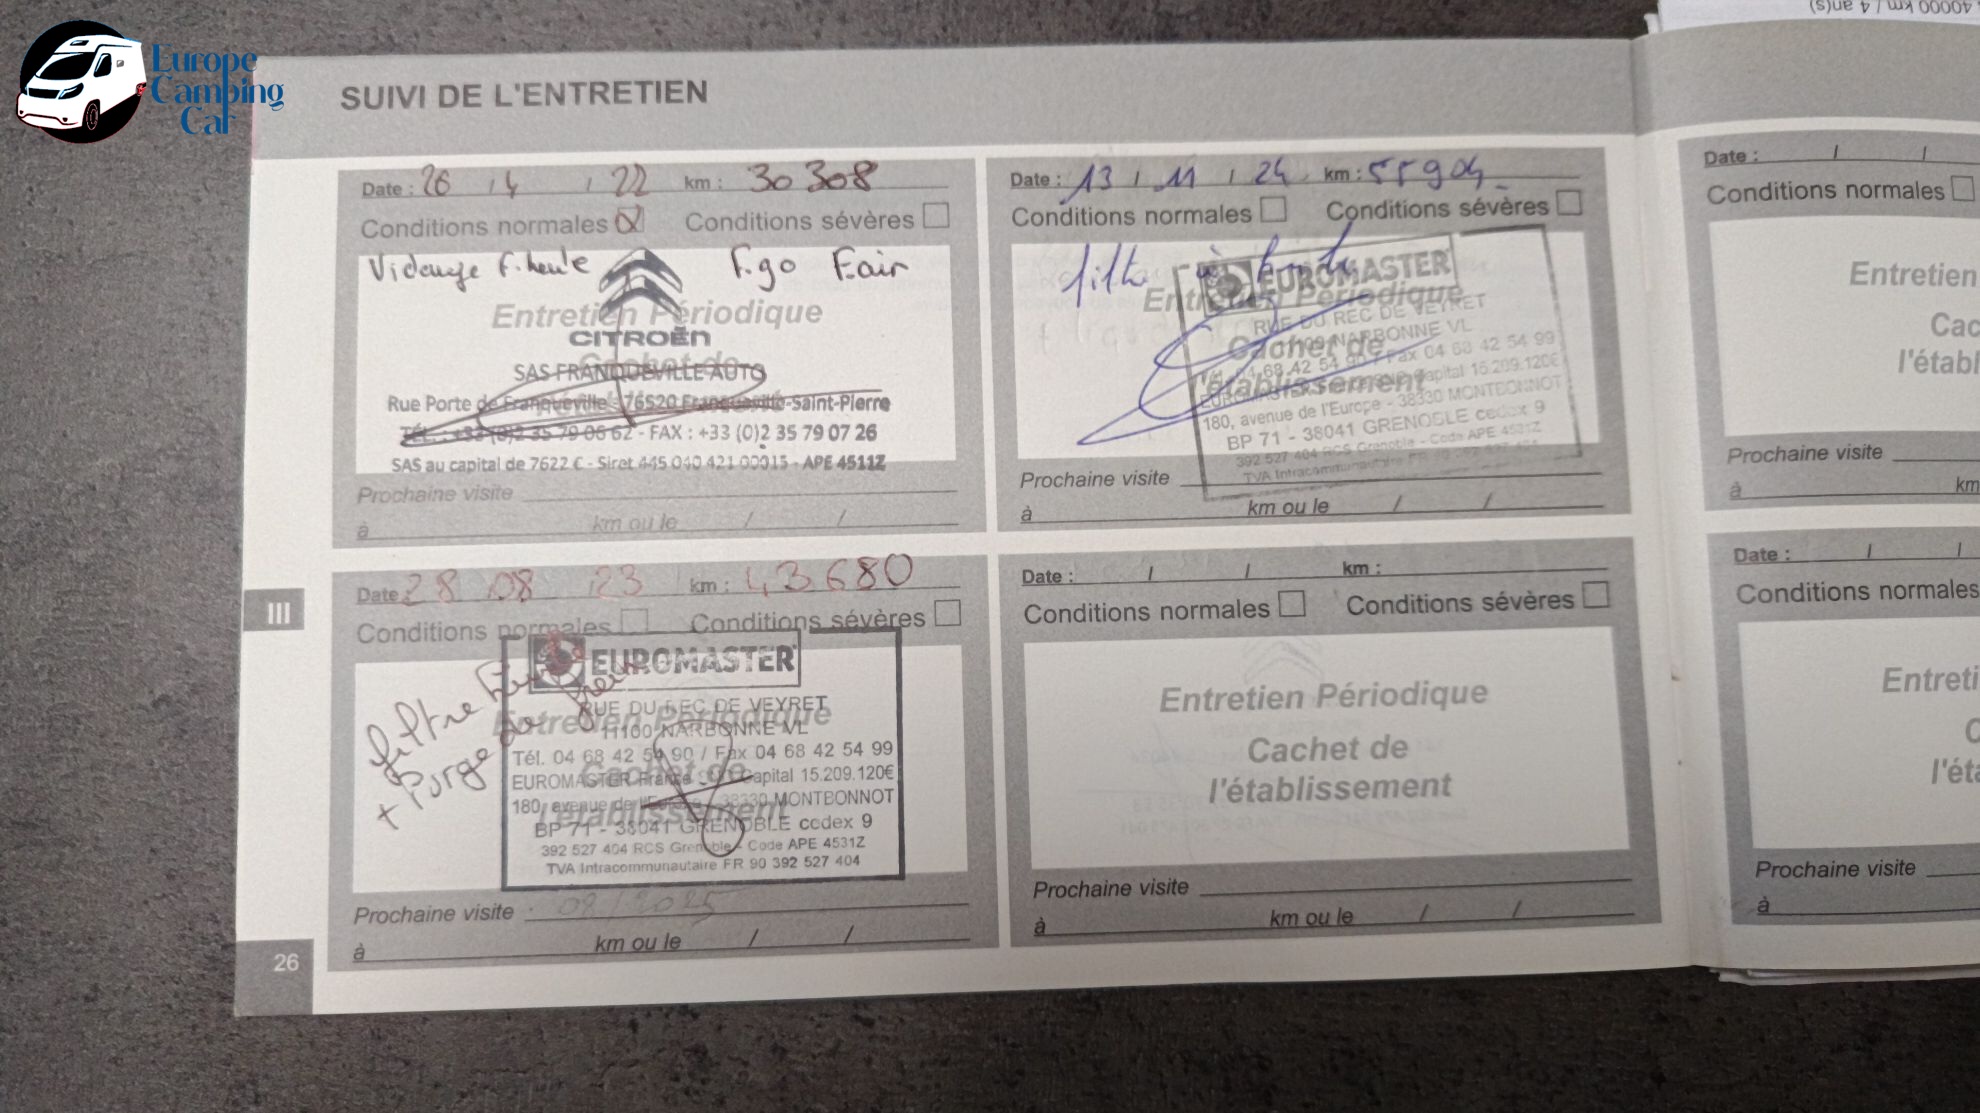 Europe
Camping
Car
40000 km / 4 an(s)
SUIVI DE L'ENTRETIEN
Date : 26 / 4 / 22 km : 30308
Conditions normales Conditions sévères
Vidange F. F.go F.air
Entretien Périodique
CITROËN
Cachet de
SAS FRANQUEVILLE AUTO
Rue Porte de Franqueville - 76520 Franqueville-Saint-Pierre
TÉL. : +33 (0)2 35 79 06 62 - FAX : +33 (0)2 35 79 07 26
SAS au capital de 7622 € - Siret 445 040 421 00015 - APE 4511Z
Prochaine visite
à km ou le / /
Date : 13 / 11 / 24 km : 55904
Conditions normales Conditions sévères
EUROMASTER
Entretien Périodique
RUE DU REC DE VEYRET
11100 NARBONNE VL
Cachet de
Tél. 04 68 42 54 90 / Fax 04 68 42 54 99
l'établissement
capital 15.209.120€
180, avenue de l'Europe - 38330 MONTBONNOT
BP 71 - 38041 GRENOBLE cedex 9
392 527 404 RCS Grenoble - Code APE 4531Z
TVA Intracommunautaire FR 90 392 527 404
Prochaine visite
à km ou le / /
Date : 28 08 23 km : 43680
Conditions normales Conditions sévères
filtre
+ Purge de frein
EUROMASTER
RUE DU REC DE VEYRET
Entretien Périodique
11100 NARBONNE VL
Tél. 04 68 42 54 90 / Fax 04 68 42 54 99
Cachet de
EUROMASTER France capital 15.209.120€
180, avenue de l'Europe - 38330 MONTBONNOT
l'établissement
BP 71 - 38041 GRENOBLE cedex 9
392 527 404 RCS Grenoble - Code APE 4531Z
TVA Intracommunautaire FR 90 392 527 404
Prochaine visite 08/2025
à km ou le / /
Date : / / km :
Conditions normales Conditions sévères
Entretien Périodique
Cachet de
l'établissement
Prochaine visite
à km ou le / /
III
26
Date : / /
Conditions normales
Entretien
Cac
l'établ
Prochaine visite
à km
Date : / /
Conditions normales
Entreti
C
l'éta
Prochaine visite
à